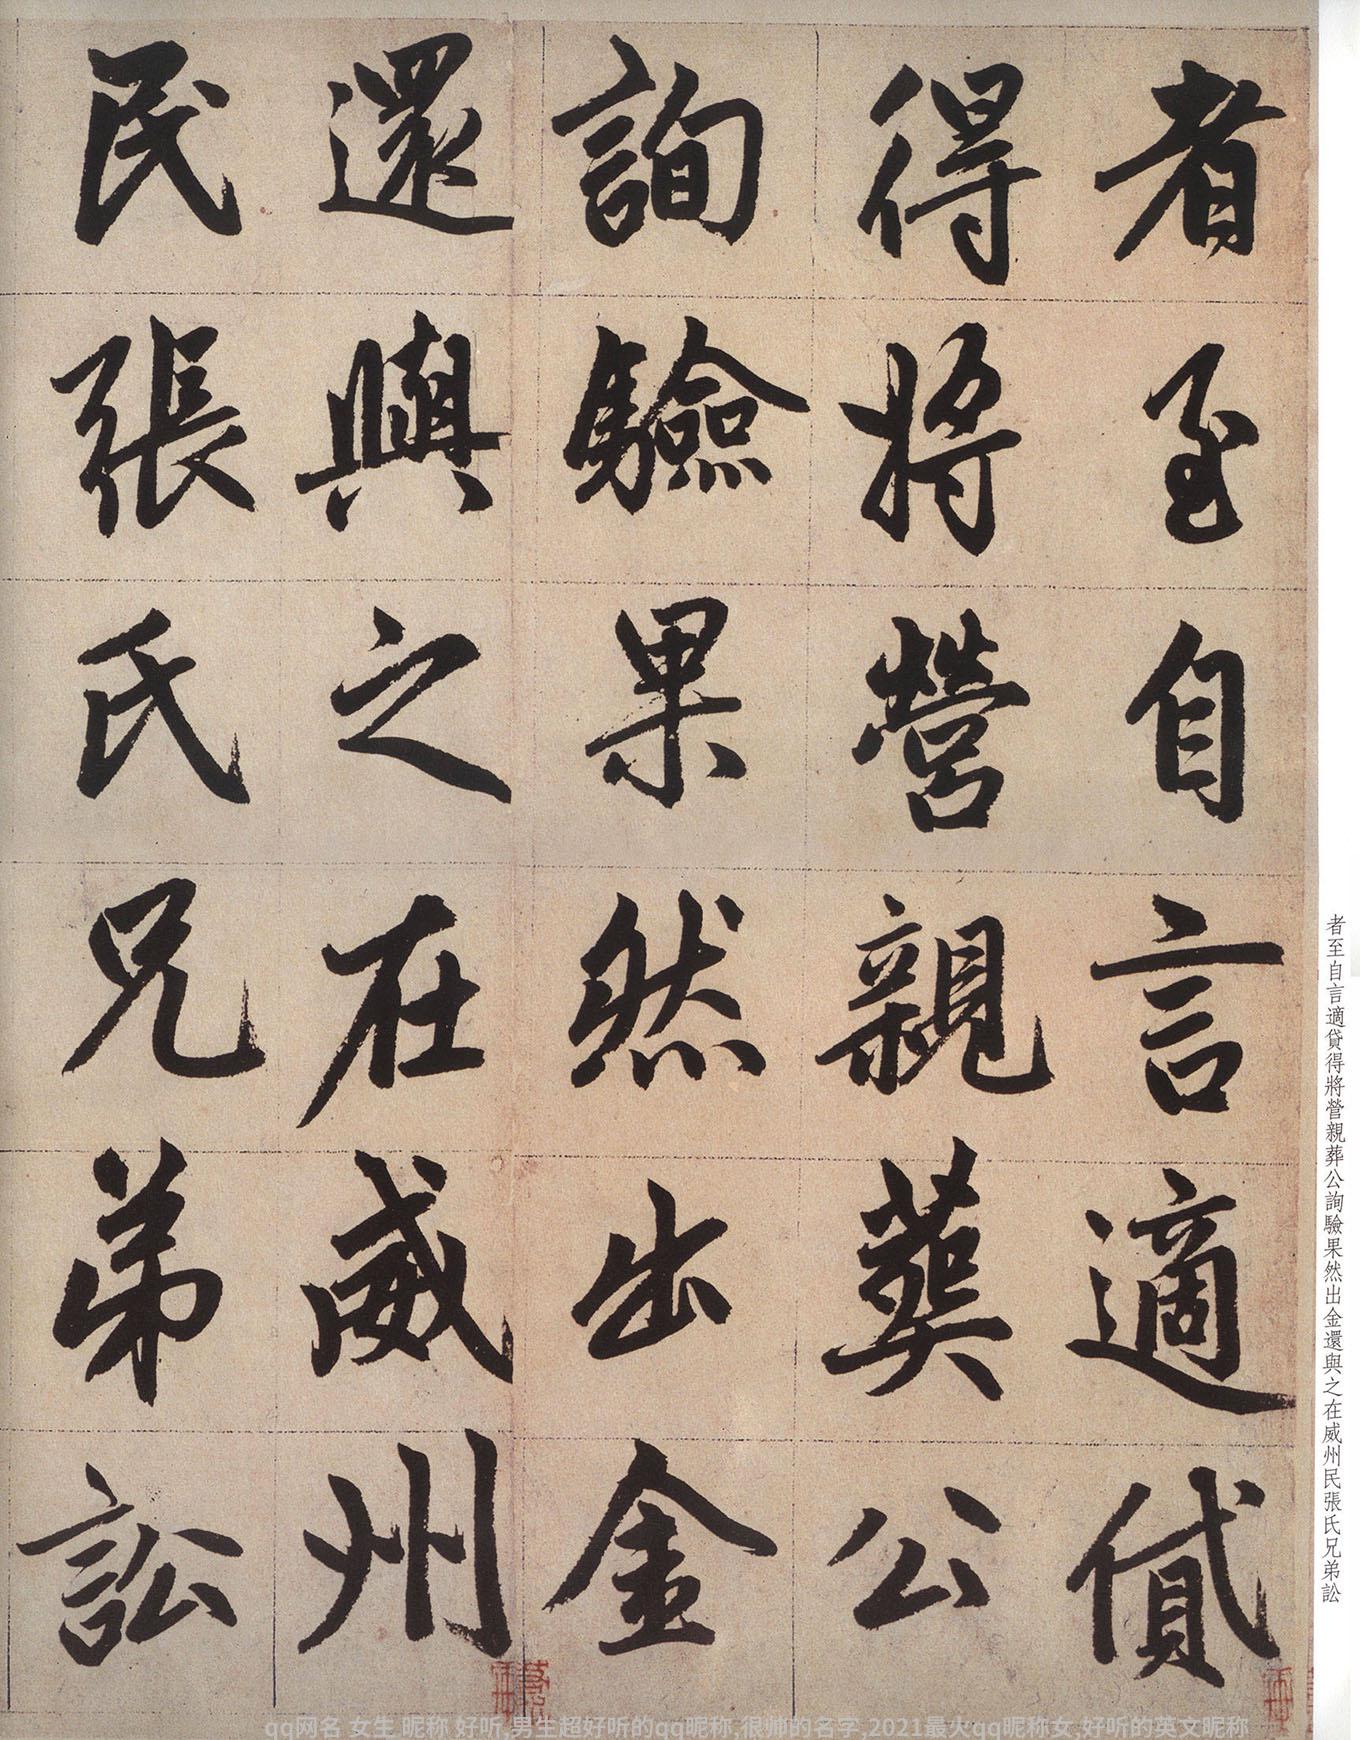 者至自言適貸
得將營親葬公
詢驗果然出金
還與之在威州
民張氏兄弟訟
者至自言適貸得將營親葬公詢驗果然出金還與之在威州民張氏兄弟訟
qq网名 女生 昵称 好听,男生超好听的qq昵称,很帅的名字,2021最火qq昵称女,好听的英文昵称